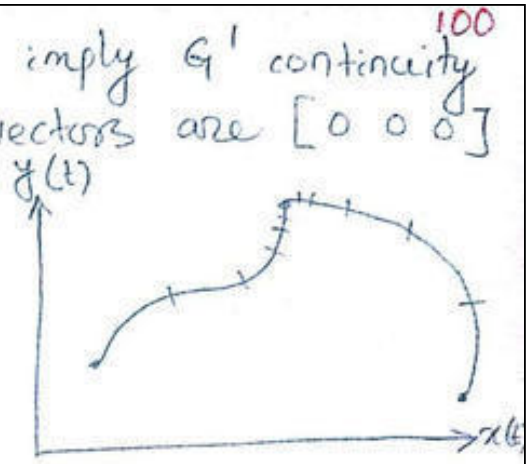 100
imply G' continuity
vectors are [0 0 0]
y(t)
x(t